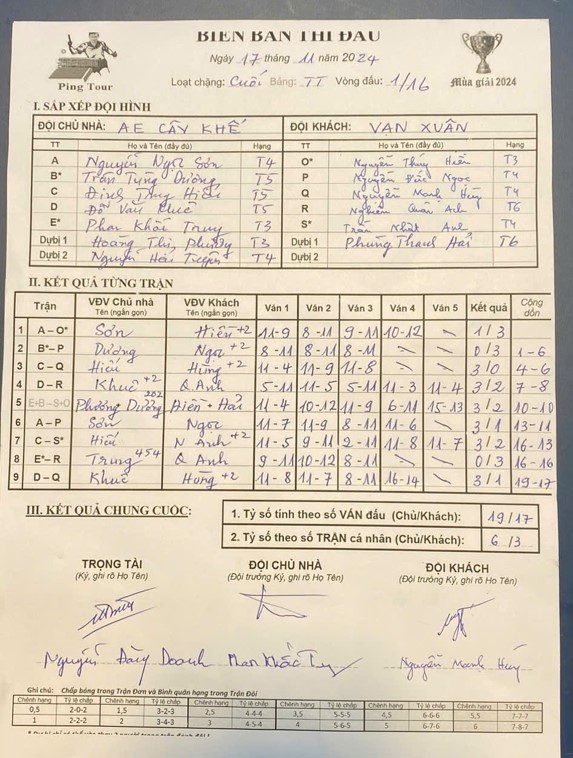 BIÊN BẢN THI ĐẤU
Ngày 17 tháng 11 năm 2024
Ping Tour
Loạt chặng: Cuối Bảng: TT Vòng đấu: 1/16
Mùa giải 2024
I. SẮP XẾP ĐỘI HÌNH
ĐỘI CHỦ NHÀ: AE CÂY KHẾ ĐỘI KHÁCH: VẠN XUÂN
TT Họ và Tên (đầy đủ) Hạng TT Họ và Tên (đầy đủ) Hạng
A Nguyễn Ngọc Sơn T4 O* Nguyễn Thúy Hiền T3
B* Trần Tùng Dương T5 P Nguyễn Đức Ngọc T4
C Đinh Thụy Hiếu T5 Q Nguyễn Mạnh Hùng T4
D Đỗ Văn Khuê T5 R Nghiêm Quân Anh T6
E* Phan Khắc Trung T3 S* Trần Nhật Anh T4
Dự bị 1 Hoàng Thị Phương T3 Dự bị 1 Phùng Thanh Hải T6
Dự bị 2 Nguyễn Hải T4 Dự bị 2
II. KẾT QUẢ TỪNG TRẬN
Trận VĐV Chủ nhà Tên (ngắn gọn) VĐV Khách Tên (ngắn gọn) Ván 1 Ván 2 Ván 3 Ván 4 Ván 5 Kết quả Cộng dồn
1 A – O* Sơn Hiền +2 11-9 8-11 9-11 10-12 \ 1/3
2 B*– P Dương Ngọc +2 8-11 8-11 8-11 \ \ 0/3 1-6
3 C – Q Hiếu Hùng +2 11-4 11-9 11-8 \ \ 3/0 4-6
4 D – R Khuê +2 Q.Anh 5-11 11-5 5-11 11-3 11-4 3/2 7-8
5 E+B – S+O Phương Dương 202 Hiền + Hải 11-4 10-12 11-9 6-11 15-13 3/2 10-10
6 A – P Sơn Ngọc 11-7 11-9 8-11 11-6 \ 3/1 13-11
7 C – S* Hiếu N Anh +2 11-5 9-11 2-11 11-8 11-7 3/2 16-13
8 E*– R Trung 454 Q Anh 9-11 10-12 8-11 \ \ 0/3 16-16
9 D – Q Khuê Hùng +2 11-8 11-7 8-11 16-14 \ 3/1 19-17
III. KẾT QUẢ CHUNG CUỘC:
1. Tỷ số tính theo số VÁN đấu (Chủ/Khách): 19/17
2. Tỷ số theo số TRẬN cá nhân (Chủ/Khách): 6/3
TRỌNG TÀI ĐỘI CHỦ NHÀ ĐỘI KHÁCH
(Ký, ghi rõ Họ Tên) (Đội trưởng Ký, ghi rõ Họ Tên) (Đội trưởng Ký, ghi rõ Họ Tên)
Nguyễn Đăng Doanh Phan Khắc Nguyễn Mạnh Hùng
Ghi chú: Chấp bóng trong Trận Đơn và Bình quân hạng trong Trận Đôi
Chênh hạng Tỷ lệ chấp Chênh hạng Tỷ lệ chấp Chênh hạng Tỷ lệ chấp Chênh hạng Tỷ lệ chấp Chênh hạng Tỷ lệ chấp Chênh hạng Tỷ lệ chấp
0,5 2-0-2 1,5 3-2-3 2,5 4-4-4 3,5 5-5-5 4,5 6-6-6 5,5 7-7-7
1 2-2-2 2 3-4-3 3 4-5-4 4 5-6-5 5 6-7-6 6 7-8-7